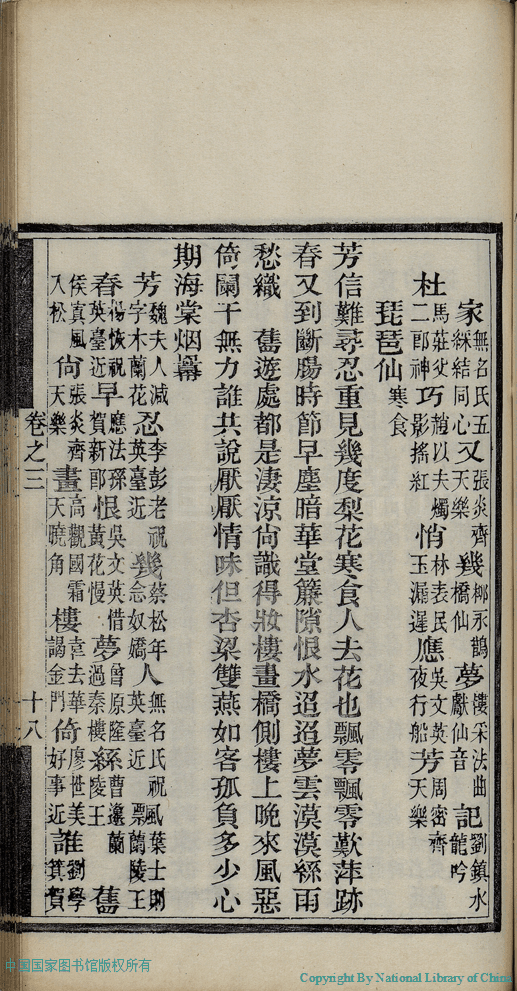 家無名氏五綵結同心又張炎齊天樂幾柳永鵲橋仙夢樓采法曲獻仙音記劉鎮水龍吟
杜馬莊父二郎神巧趙以夫燭影搖紅悄林表民玉漏遲應吳文英夜行船芳周密齊天樂
琵琶仙寒食
芳信難尋忍重見幾度梨花寒食人去花也飄零飄零歎萍跡
春又到斷腸時節早塵暗華堂簾隙恨水迢迢夢雲漠漠絲雨
愁織 舊遊處都是淒涼尚識得妝樓畫橋側樓上晚來風惡
倚闌干無力誰共說厭厭情味但杏梁雙燕如客孤負多少心
期海棠烟冪
芳魏夫人減字木蘭花忍李彭老祝英臺近幾蔡松年念奴嬌人無名氏祝英臺近飄葉士則蘭陵王
春楊恢祝英臺近早應法孫賀新郎恨吳文英惜黃花慢夢曾原隆過秦樓絲曹邍蘭陵王舊
侯寘風入松尚張炎齊天樂畫高觀國霜天曉角樓韋去華謁金門倚廖世美好事近誰劉學箕賀
卷之三
十八
中国国家图书馆版权所有
Copyright By National Library of China